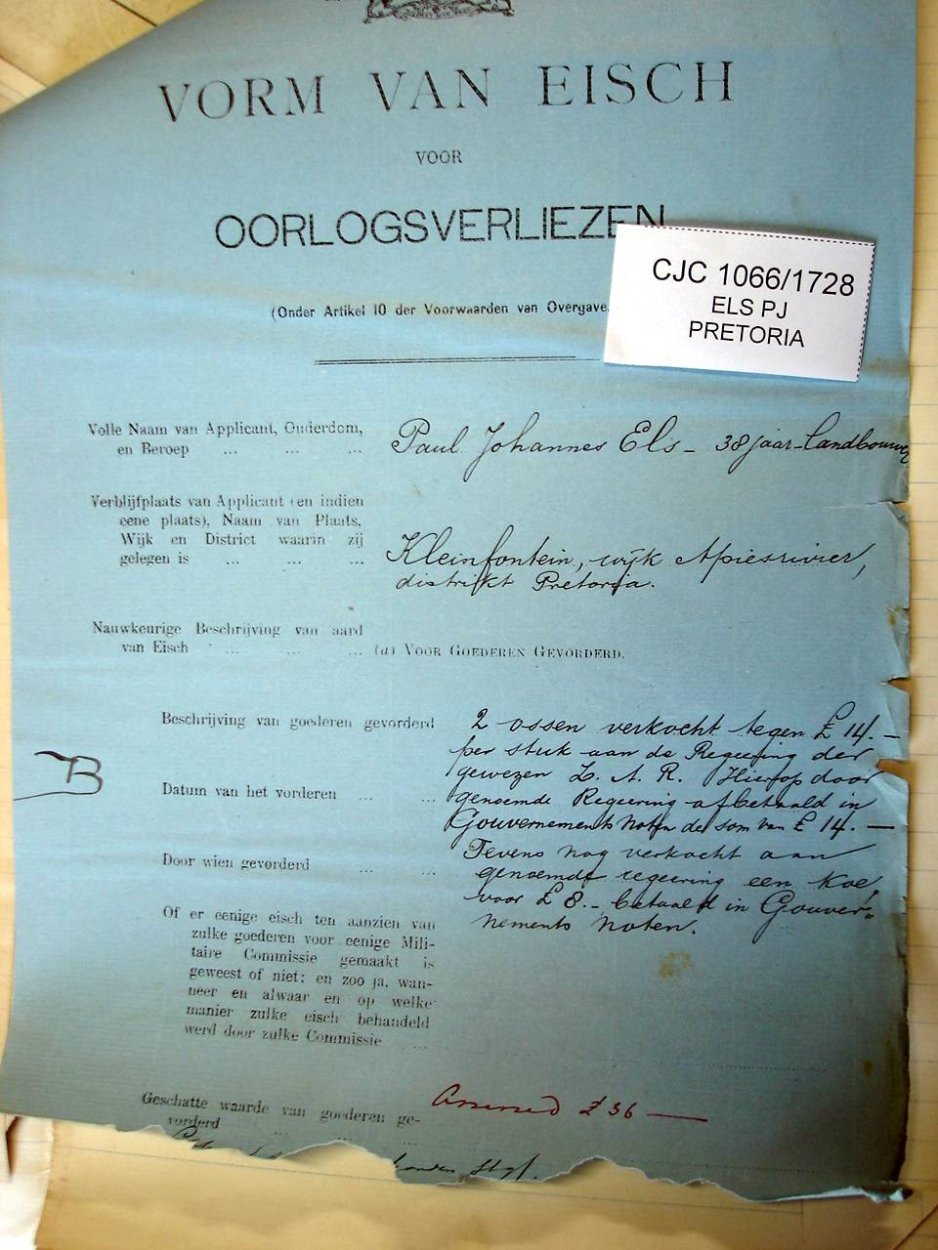 VORM VAN EISCH
VOOR
OORLOGSVERLIEZEN
(Onder Artikel 10 der Voorwaarden van Overgave.
CJC 1066/1728
ELS PJ
PRETORIA
Volle Naam van Applicant, Ouderdom,
en Beroep ... ... ...
Paul Johannes Els - 38 jaar - Landbouwer
Verblijfplaats van Applicant (en indien
eene plaats), Naam van Plaats,
Wijk en District waarin zij
gelegen is ... ... ...
Kleinfontein, wijk Apiesrivier,
distrikt Pretoria.
Nauwkeurige Beschrijving van aard
van Eisch ... ... ...
(a) VOOR GOEDEREN GEVORDERD.
Beschrijving van goederen gevorderd
2 ossen verkocht tegen £ 14. —
per stuk aan de Regeering der
gewezen Z. A. R. Hierop door
genoemde Regeering afbetaald in
Gouvernements Noten de som van £ 14. —
Tevens nog verkocht aan
genoemde regeering een Koe
voor £ 8. - betaald in Gouver-
nements Noten.
B
Datum van het vorderen ... ...
Door wien gevorderd ... ...
Of er eenige eisch ten aanzien van
zulke goederen voor eenige Mili-
taire Commissie gemaakt is
geweest of niet; en zoo ja, wan-
neer en alwaar en op welke
manier zulke eisch behandeld
werd door zulke Commissie ...
Geschatte waarde van goederen ge-
vorderd ... ...
Assessed £ 36 —